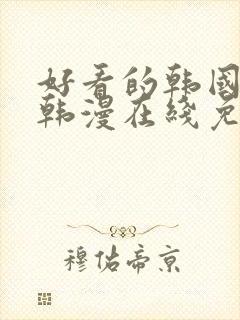 好看的韩国
韩漫在线免
穆佑帝京